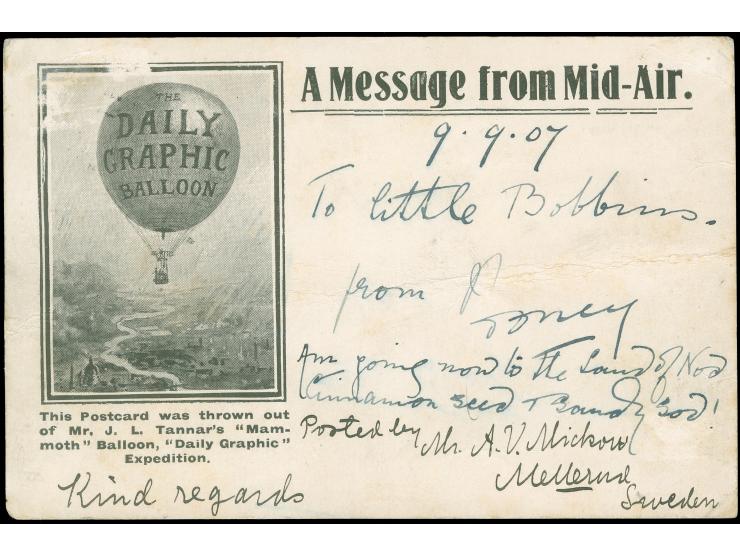 THE
DAILY
GRAPHIC
BALLOON
This Postcard was thrown out
of Mr. J. L. Tannar's "Mam-
moth" Balloon, "Daily Graphic"
Expedition.
A Message from Mid-Air.
9.9.07
To little Bobbins.
from
Am going now to the Land of Nod
Cinnamon seed & Sandy sod!
Posted by Mr. A. V. Mickow
Mellerud
Sweden
Kind regards